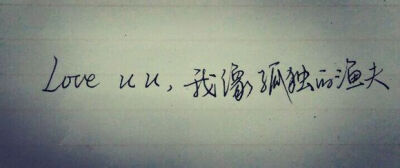 Love uu,我像孤独的渔夫